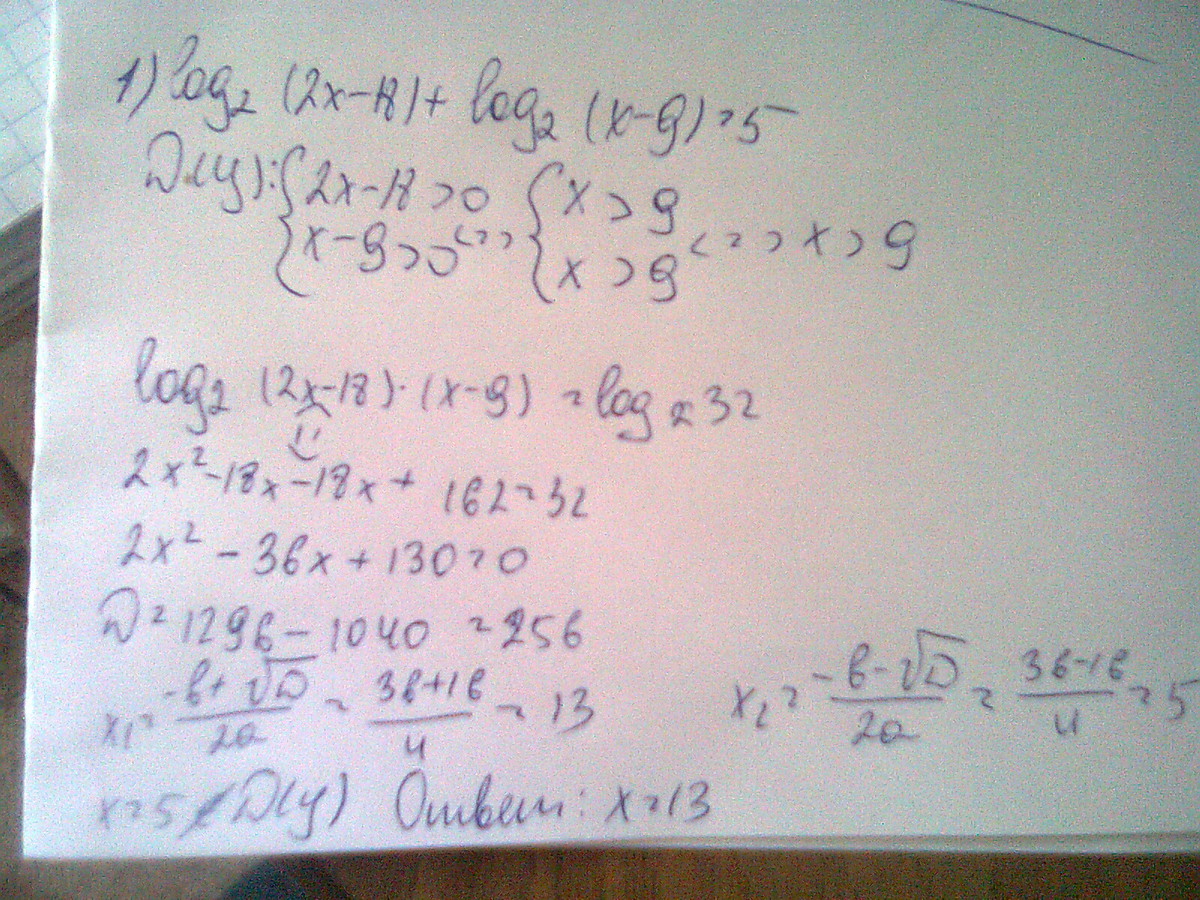 1) log₂ (2x-18) + log₂ (x-9) = 5
D(y): { 2x-18 > 0 { x > 9
{ x-9 > 0 <=> { x > 9 <=> x > 9
log₂ (2x-18)·(x-9) = log₂ 32
2x²-18x-18x+ 162 = 32
2x² - 36x + 130 = 0
D = 1296 - 1040 = 256
x₁ = (-b+√D)/2a = (36+16)/4 = 13 x₂ = (-b-√D)/2a = (36-16)/4 = 5
x=5 ∉ D(y) Ответ: x=13